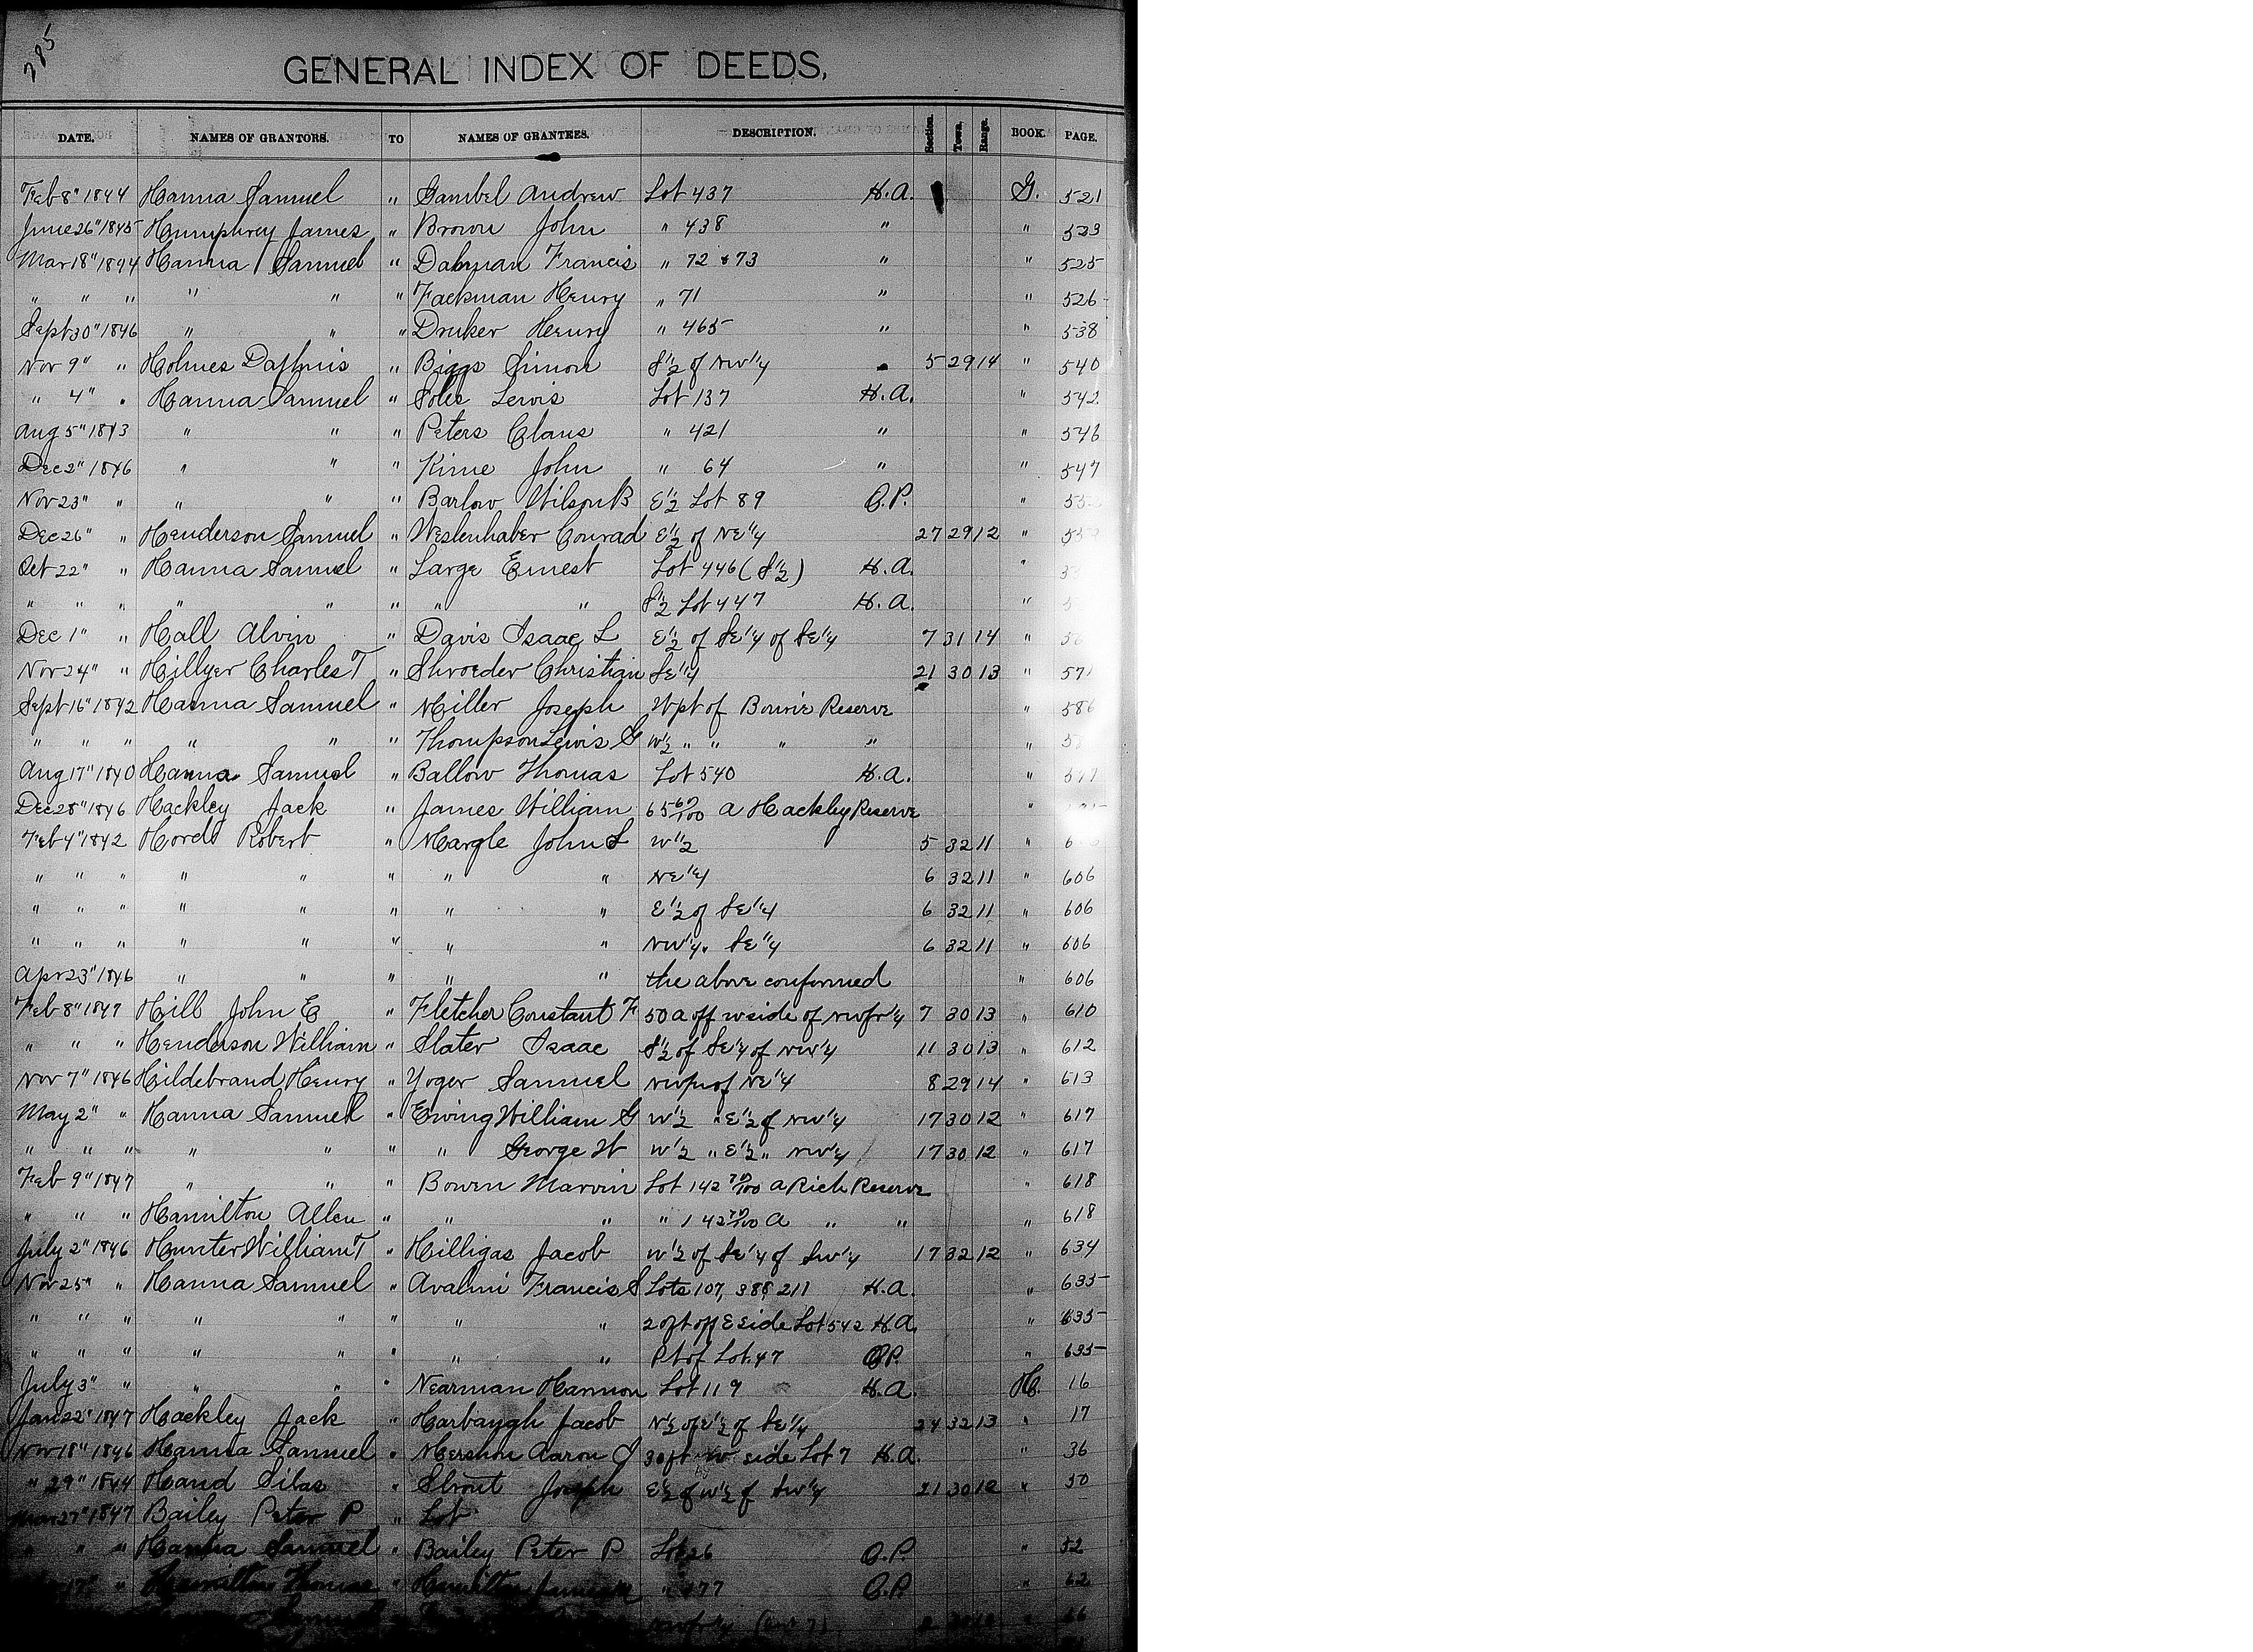 285
GENERAL INDEX OF DEEDS.
DATE. NAMES OF GRANTORS. TO NAMES OF GRANTEES. DESCRIPTION. Section. Town. Range. BOOK. PAGE.
Feb 8" 1844 Hanna Samuel " Gambel Andrew Lot 437 H.A. G. 521
June 26" 1845 Humphrey James " Brown John " 438 " " 523
Mar 18" 1844 Hanna Samuel " Dahman Francis " 72 & 73 " " 525
" " " " " " Fackman Henry " 71 " " 526
Sept 30" 1846 " " " Druker Henry " 465 " " 538
Nov 9" " Holmes Daphnis " Biggs Simon S 1/2 of NW 1/4 5 29 14 " 540
" 4" " Hanna Samuel " Soles Lewis Lot 137 H.A. " 542
Aug 5" 1843 " " " Peters Claus " 421 " " 546
Dec 2" 1846 " " " Kime John " 64 " " 547
Nov 23" " " " " Barlow Wilson B E 1/2 Lot 89 O.P. "
Dec 26" " Henderson Samuel " Weslenhaber Conrad E 1/2 of NE 1/4 27 29 12 "
Oct 22" " Hanna Samuel " Large Ernest Lot 446 (S 1/2) H.A. "
" " " " " " " " S 1/2 Lot 447 H.A. "
Dec 1" " Hall Alvin " Davis Isaac L E 1/2 of SE 1/4 of SE 1/4 7 31 14 "
Nov 24" " Hillyer Charles T " Shroeder Christian SE 1/4 21 30 13 " 571
Sept 16" 1842 Hanna Samuel " Miller Joseph W pt of Bourie Reserve " 586
" " " " " " Thompson Lewis G W 1/2 " " " " "
Aug 17" 1840 Hanna Samuel " Ballow Thomas Lot 540 H.A. "
Dec 28" 1846 Hackley Jack " James William 65 60/100 A Hackley Reserve "
Feb 4" 1842 Hord Robert " Nargle John S W 1/2 5 32 11 "
" " " " " " " " NE 1/4 6 32 11 " 606
" " " " " " " " E 1/2 of SE 1/4 6 32 11 " 606
" " " " " " " " NW 1/4 " SE 1/4 6 32 11 " 606
Apr 23" 1846 " " " " " the above confirmed " 606
Feb 8" 1847 Hill John E " Fletcher Constant F 50 a off w side of nw fr 1/4 7 30 13 " 610
" " " Henderson William " Slater Isaac S 1/2 of SE 1/4 of NW 1/4 11 30 13 " 612
Nov 7" 1846 Hildebrand Henry " Yoger Samuel of NE 1/4 8 29 14 " 613
May 2" " Hanna Samuel " Ewing William G W 1/2 " E 1/2 of NW 1/4 17 30 12 " 617
" " " " " " " George W W 1/2 " E 1/2 " NW 1/4 17 30 12 " 617
Feb 9" 1847 " " " Bowen Marvin Lot 142 70/100 a Rich Reserve " 618
" " " Hamilton Allen " " " " 142 70/100 A " " " 618
July 2" 1846 Hunter William T " Hilligas Jacob W 1/2 of SE 1/4 of SW 1/4 17 32 12 " 634
Nov 25" " Hanna Samuel " Avaline Francis S Lots 107, 211 H.A. " 635
" " " " " " " " 20 ft off E side Lot 542 H.A. " 635
" " " " " " " " Pt of Lot 47 O.P. " 635
July 3" " " " " Nearman Harmon Lot 119 H.A. H. 16
Jan 22" 1847 Hackley Jack " Harbaugh Jacob N 1/2 of E 1/2 of SE 1/4 24 32 13 " 17
Nov 18" 1846 Hanna Samuel " Mershon Aaron J 30 ft W side Lot 7 H.A. " 36
" 29" 1844 Hand Silas " Strout Joseph E 1/2 of W 1/2 of SW 1/4 21 30 12 " 50
Mar 27" 1847 Bailey Peter P " Lot
" " " Hanna Samuel " Bailey Peter P Lot 26 O.P. " 52
17" " Hamilton Thomas " Hamilton " 177 O.P. " 62
66